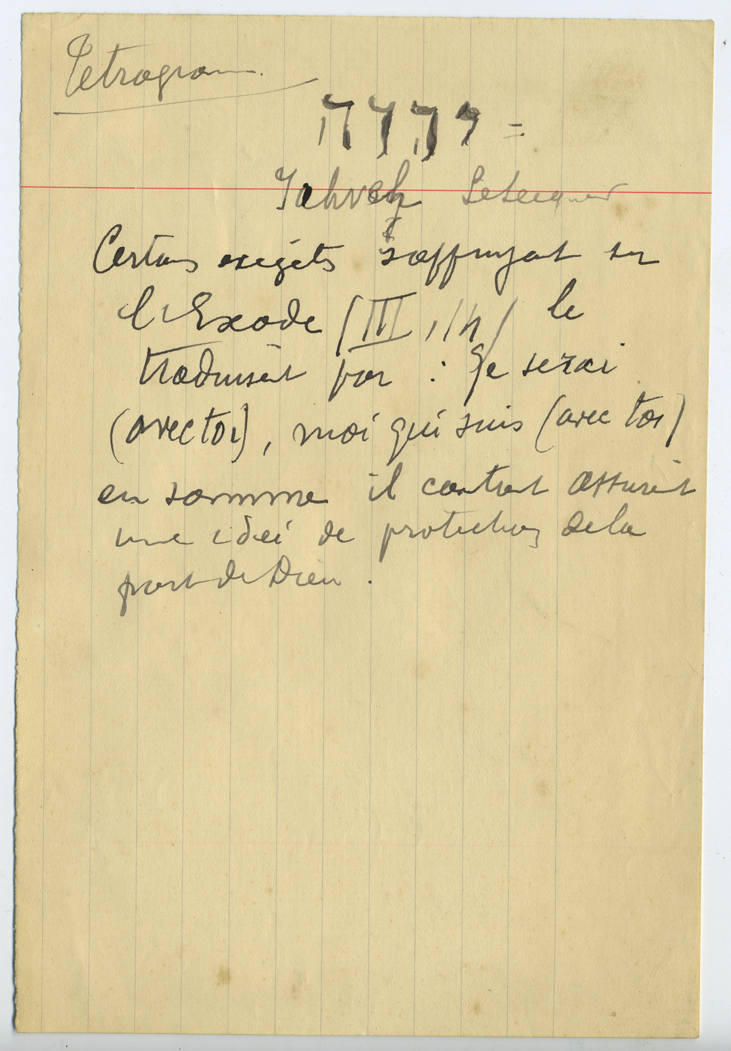 Tetragram
יהוה =
Jahveh
Certains exégèts s'appuyant sur
l'Exode (III, 14) le
traduisent par : Je serai
(avec toi), moi qui suis (avec toi)
en somme il contient assurent
une idée de protection de la
part de Dieu.